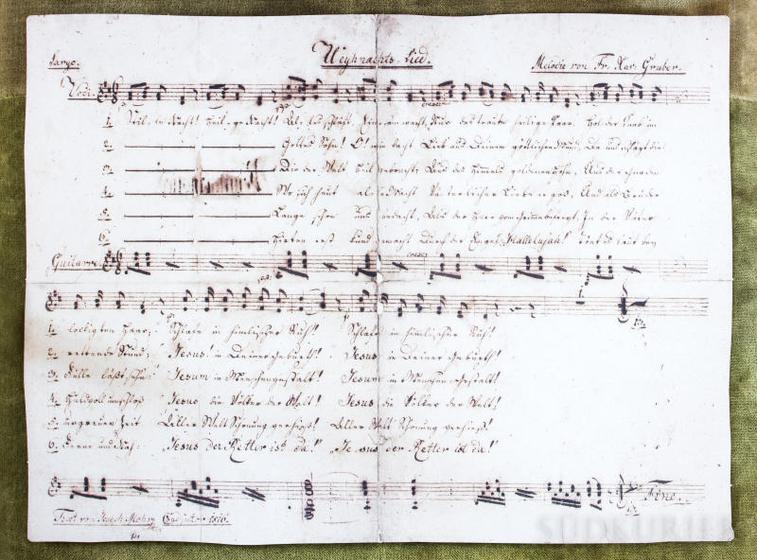 Largo.
Weyhnachts-Lied.
Melodie von Fr. Xav. Gruber.
Voci.
1. Stille Nacht! Heilige Nacht! Alles schläft. Einsam wacht, Nur das traute heilige Paar. Holder Knab' im
2. Gottes Sohn! O! wie lacht Lieb' aus Deinem göttlichen Mund, Da uns schlägt die
3. Die der Welt Heil gebracht, Aus des Himmels goldenen Höhn, Aus der Gnaden
4. Wo sich heut alle Macht Väterlicher Liebe ergoß, Und als Bruder
5. Lange schon uns bedacht, Als der Herr vom Grimme befreyt, In der Väter
6. Hirten erst kund gemacht Durch der Engel Hallelujah! Tönt es laut bey
Guitarre
1. lockigten Haar; Schlafe in himlischer Ruh! Schlafe in himlischer Ruh!
2. rettende Stund; Jesus! in Deiner Geburth! Jesus in Deiner Geburth!
3. Fülle läßt sehn: Jesum in Menschengestalt! Jesum in Menschengestalt!
4. huldvoll umschloß Jesus die Völker der Welt! Jesus die Völker der Welt!
5. urgrauer Zeit Aller Welt Schonung verhieß! Aller Welt Schonung verhieß!
6. Ferne und Nah: „Jesus der Retter ist da!" „Jesus der Retter ist da!"
Fine.
Text von Joseph Mohr, Coadjutor 1816.
SÜDKURIER